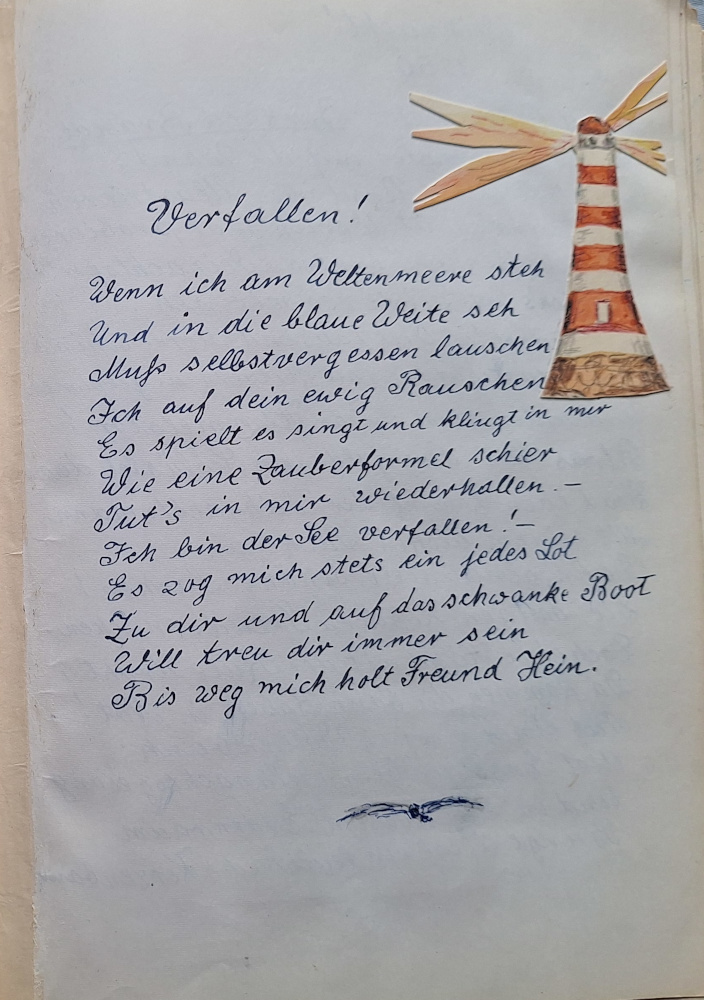 Verfallen!
Wenn ich am Weltenmeere steh
Und in die blaue Weite seh
Muß selbstvergessen lauschen
Ich auf dein ewig Rauschen
Es spielt es singt und klingt in mir
Wie eine Zauberformel schier
Tut's in mir wiederhallen. –
Ich bin der See verfallen! –
Es zog mich stets ein jedes Lot
Zu dir und auf das schwanke Boot
Will treu dir immer sein
Bis weg mich holt Freund Hein.